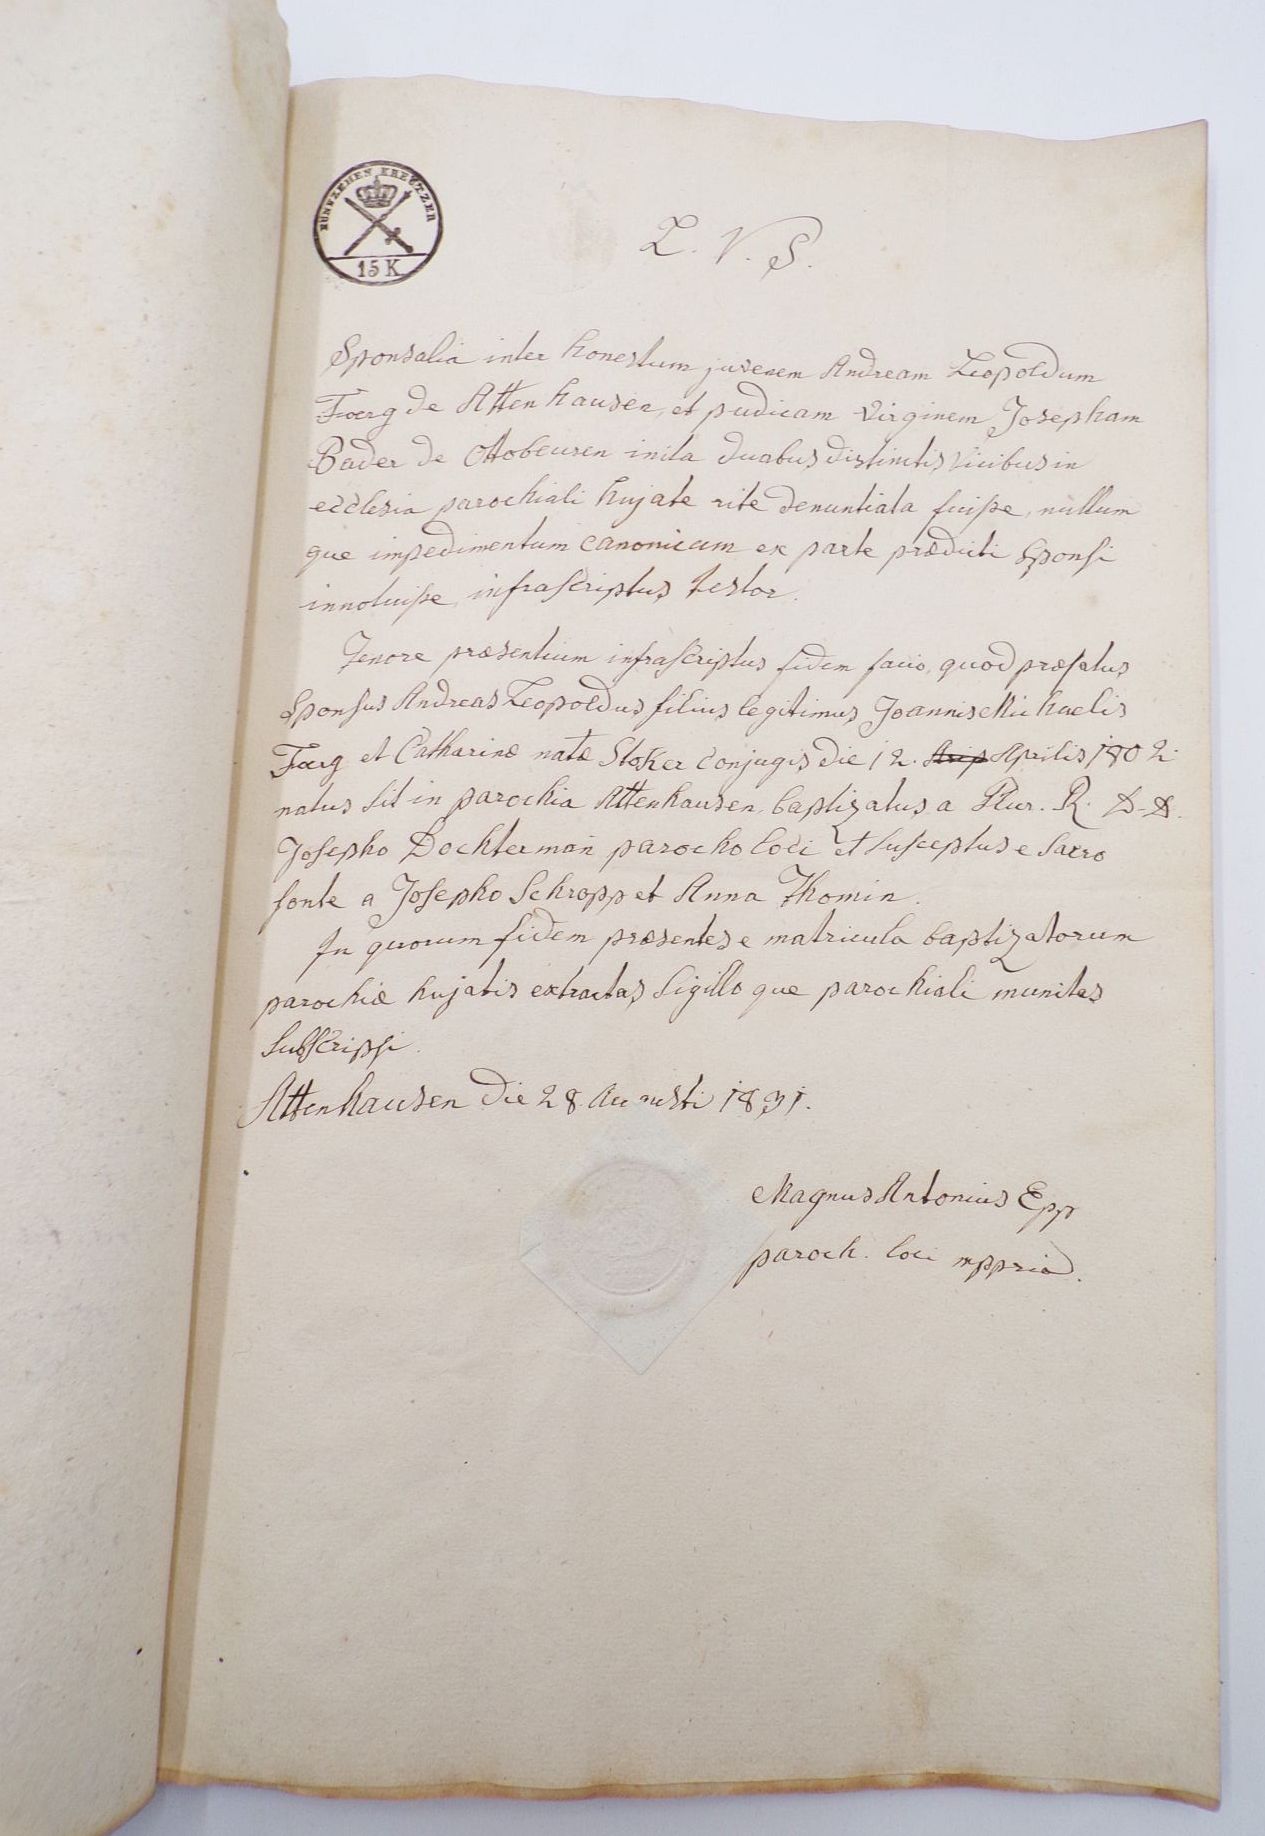 FÜNFZEHEN KREUTZER
15 K
L. V. S.
Sponsalia inter honestum juvenem Andream Leopoldum
Foerg de Attenhausen, et pudicam virginem Josepham
Bader de Ottobeuren inita duabus distinctis vicibus in
ecclesia parochiali hujate rite denuntiata fuiße, nullum
que impedimentum canonicum ex parte prædicti Sponsi
innotuiße, infrascriptus testor.
Tenore præsentium infrascriptus fidem facio, quod præfatus
Sponsus Andreas Leopoldus filius legitimus Joannis Michaelis
Foerg et Catharinæ natæ Stoker conjugis die 12. Aprilis 1802
natus sit in parochia Attenhausen, baptizatus a Plur. R. D. D.
Josepho Dochterman̄ parocho loci et susceptus e sacro
fonte a Josepho Schropp et Anna Thomin.
In quorum fidem præsentes e matricula baptizatorum
parochiæ hujatis extractas Sigillo que parochiali munitas
subscripsi.
Attenhausen die 28 Augusti 1831.
Magnus Antonius Epp
paroch. loci mppria.